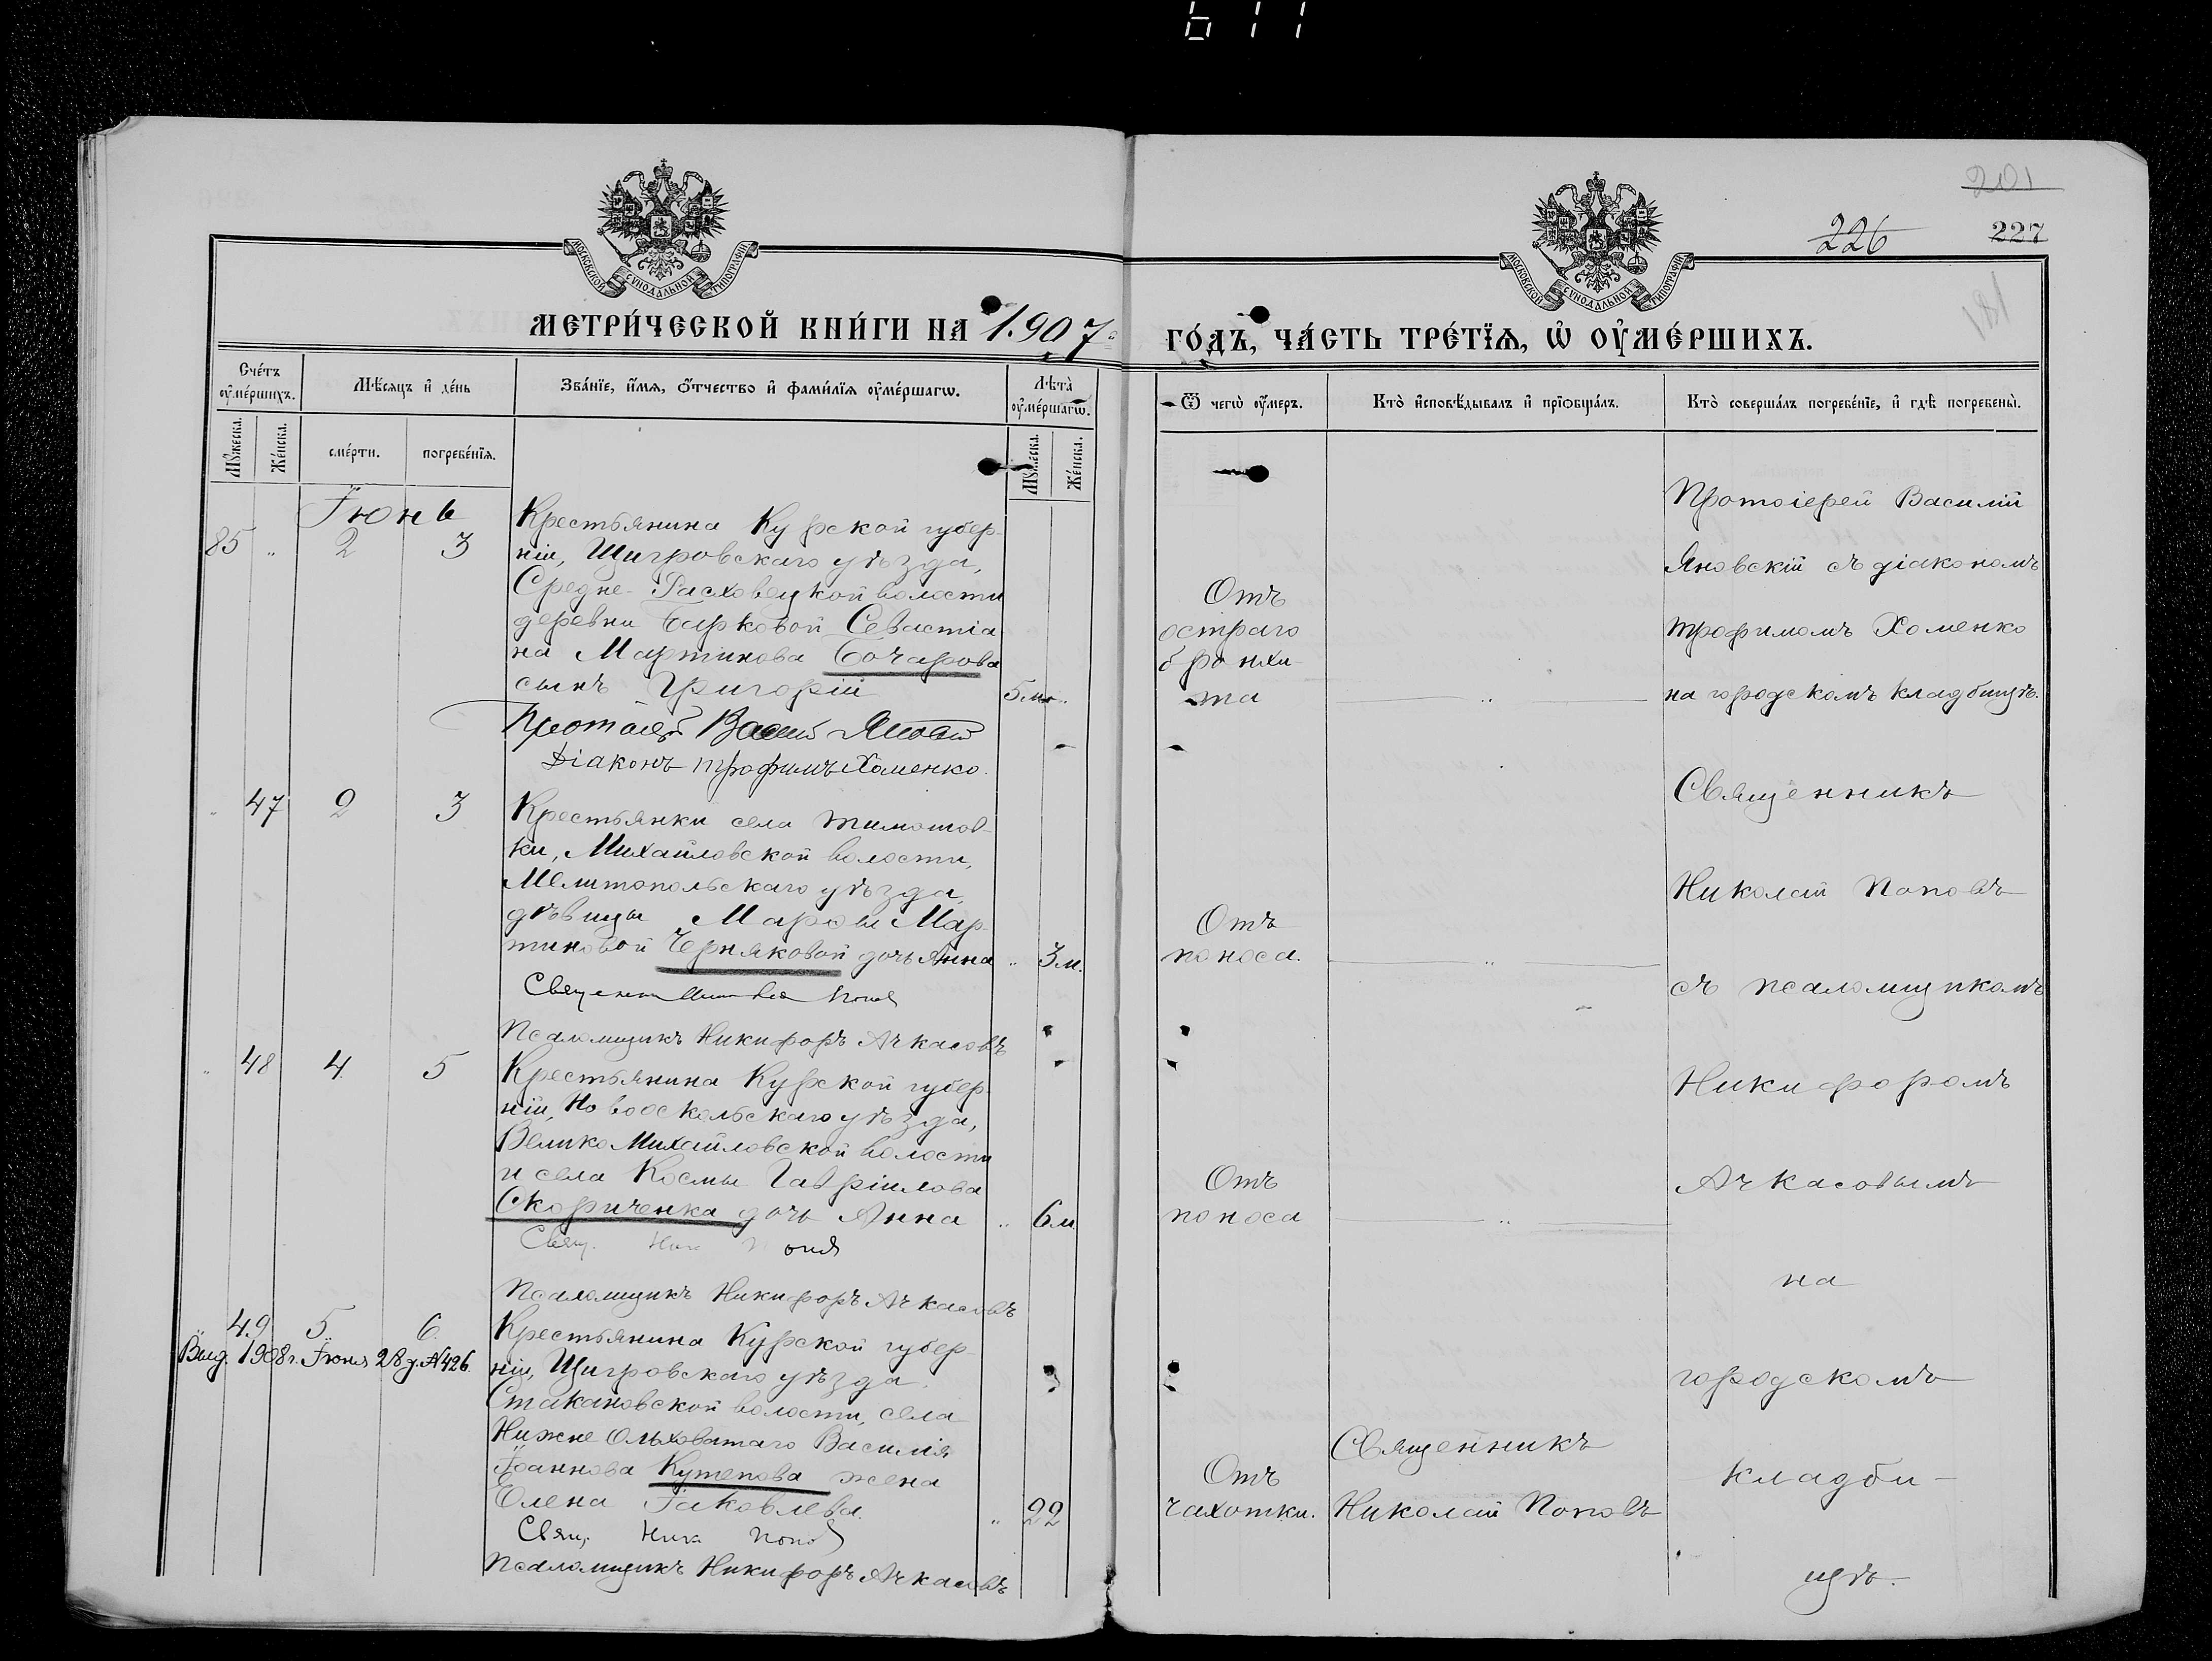 611
201
226
227
181
МОСКОВСКОЙ СѴНОДАЛЬНОЙ ТИПОГРАФІИ
МОСКОВСКОЙ СѴНОДАЛЬНОЙ ТИПОГРАФІИ
МЕТРИ́ЧЕСКОЙ КНИ́ГИ НА 1907
ГО́ДЪ, ЧА́СТЬ ТРЕ́ТЇѦ, Ѡ҆ ОУ҆МЕ́РШИХЪ.
Сче́тъ оу҆ме́ршихъ.
Мѣ́сѧцъ и҆ де́нь
Зва́нїе, и҆́мѧ, ѻ҆́тчество и҆ фами́лїѧ оу҆ме́ршагѡ.
Лѣ́та оу҆ме́ршагѡ.
Ѿ чегѡ̀ оу҆́меръ.
Кто̀ и҆сповѣ́дывалъ и҆ прїѻбща́лъ.
Кто̀ соверша́лъ погребе́нїе, и҆ гдѣ̀ погребены̀.
Мꙋ́жеска.
Же́нска.
сме́рти.
погребе́нїѧ.
Мꙋ́жеска.
Же́нска.
Іюнь
85 " 2 3
Крестьянина Курской губер-
ніи, Щигровскаго уѣзда,
Средне-Расховецкой волости
деревни Барковой Севастіа-
на Мартинова Бочарова
сынъ Григорій
5 м. "
Протоіер Васил Яновскій
Діаконъ Трофимъ Хоменко.
Отъ
остраго
бронхи-
та
"
Протоіерей Василій
Яновскій съ діакономъ
Трофимомъ Хоменко
на городскомъ кладбищѣ.
" 47 2 3
Крестьянки села Тимошов-
ки, Михайловской волости,
Мелитопольскаго уѣзда,
дѣвицы Марѳы Мар-
тиновой Черняковой дочь Анна
" 3 м.
Священникъ Николай Попов
Псаломщикъ Никифоръ Ачкасовъ
Отъ
поноса.
"
Священникъ
Николай Поповъ
съ псаломщикомъ
Никифоромъ
Ачкасовымъ
на
городскомъ
кладби-
щѣ.
" 48 4 5
Крестьянина Курской губер-
ніи, Новооскольскаго уѣзда,
Велико Михайловской волости
и села Космы Гавріилова
Скориченка дочь Анна
" 6 м
Свящ. Ник Попов
Псаломщикъ Никифоръ Ачкасовъ
Отъ
поноса
"
" 49 5 6
Выд. 1908 г. Іюня 28 д. №426.
Крестьянина Курской губер-
ніи, Щигровскаго уѣзда,
Стакановской волости, села
Нижне Ольховатаго Василія
Іоаннова Кутепова жена
Елена Іаковлева.
" 22
Свящ. Ник Попов
Псаломщикъ Никифоръ Ачкасовъ
Отъ
чахотки.
Священникъ
Николай Поповъ